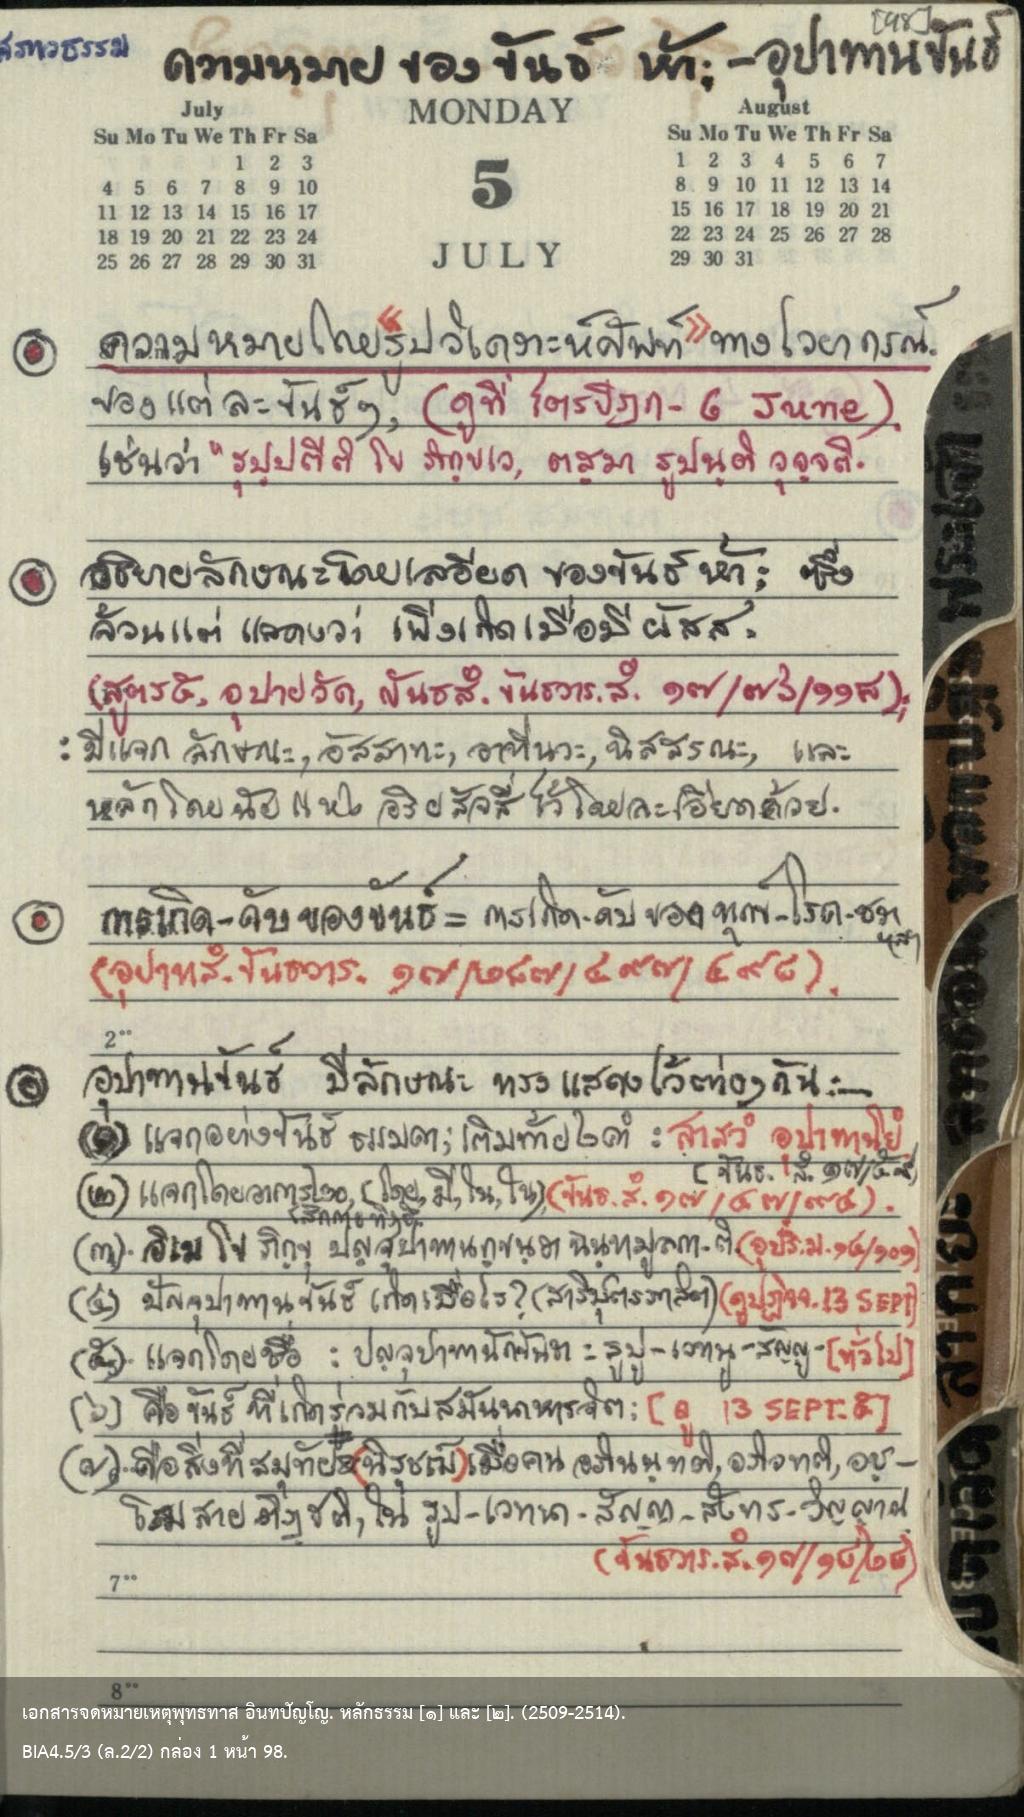 [98]
สภาวธรรม
ความหมาย ของ ขันธ์ ห้า; - อุปาทานขันธ์
July MONDAY August
Su Mo Tu We Th Fr Sa Su Mo Tu We Th Fr Sa
1 2 3 1 2 3 4 5 6 7
4 5 6 7 8 9 10 8 9 10 11 12 13 14
11 12 13 14 15 16 17 15 16 17 18 19 20 21
18 19 20 21 22 23 24 22 23 24 25 26 27 28
25 26 27 28 29 30 31 29 30 31
5
JULY
ความหมายโดย "รูปวิเคราะห์ศัพท์" ทางไวยากรณ์.
ของแต่ละขันธ์ๆ, (ดูที่ ไตรปิฎก - 6 June).
เช่นว่า "รุปฺปตีติ โข ภิกฺขเว, ตสฺมา รูปนฺติ วุจฺจติ.
อธิบายลักษณะโดยละเอียด ของขันธ์ห้า; ซึ่ง
ล้วนแต่ แสดงว่า เพิ่งเกิดเมื่อมีผัสส.
(สูตร๕, อุปายวัค, ขันธสํ. ขันธวาร.สํ. ๑๗/๗๓/๑๑๒);
: มีแจก ลักษณะ, อัสสาทะ, อาทีนวะ, นิสสรณะ, และ
หลักโดยนัยแห่ง อริยสัจสี่ ไว้โดยละเอียดด้วย.
การเกิด-ดับของขันธ์ = การเกิด-ดับ ของ ทุกข์-โรค-ชรา
(อุปาทสํ. ขันธวาร. ๑๗/๒๘๗/๔๙๗/๔๙๘).
2⁰⁰
อุปาทานขันธ์ มีลักษณะ ทรงแสดงไว้ต่างๆกัน:—
(๑) แจกอย่างขันธ์ ธรรมดา; เติมท้าย๒คำ : สาสวํ อุปาทานิยํ
(ขันธ. สํ. ๑๗/๕๘)
(๒) แจกโดยอาการ๒๐, (โดย, มี, ใน, ใน) (ขันธ. สํ. ๑๗/๕๗/๙๔).
(สักกายทิฏฐิ)
(๓). อิเม โข ภิกฺขุ ปญฺจุปาทานกฺขนฺธา ฉนฺทมูลกา.ติ (อุปริ.ม.๑๔/๑๐๑)
(๔) ปัญจุปาทานขันธ์ เกิดเมื่อไร? (สารีบุตรภาสิต) (ดูปฏิจจ. 13 SEPT)
(๕). แจกโดยชื่อ : ปญฺจุปาทานักขันธา = รูปู-เวทนู-สัญญู-[ทั่วไป]
(๖) คือขันธ์ ที่เกิดร่วมกับสมันนาหารจิต; [ดู 13 SEPT.๕]
(๗). คือสิ่งที่สมุทัย (นิรุชฌ) เมื่อคน อภินนฺทติ, อภิวทติ, อชฺ-
โฌสาย ติฏฺฐติ, ใน รูป-เวทนา-สัญญา-สังขาร-วิญญาณ
(ขันธวาร.สํ.๑๗/๑๘/๒๘)
7⁰⁰
8⁰⁰
เอกสารจดหมายเหตุพุทธทาส อินทปัญโญ. หลักธรรม [๑] และ [๒]. (2509-2514).
BIA4.5/3 (ล.2/2) กล่อง 1 หน้า 98.